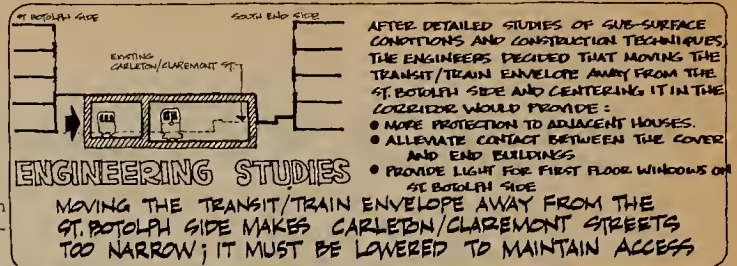 ST BOTOLPH SIDE
SOUTH END SIDE
EXISTING
CARLETON/CLAREMONT ST.
ENGINEERING STUDIES
AFTER DETAILED STUDIES OF SUB-SURFACE
CONDITIONS AND CONSTRUCTION TECHNIQUES,
THE ENGINEERS DECIDED THAT MOVING THE
TRANSIT/TRAIN ENVELOPE AWAY FROM THE
ST. BOTOLPH SIDE AND CENTERING IT IN THE
CORRIDOR WOULD PROVIDE:
• MORE PROTECTION TO ADJACENT HOUSES.
• ALLEVIATE CONTACT BETWEEN THE COVER
AND END BUILDINGS
• PROVIDE LIGHT FOR FIRST FLOOR WINDOWS ON
ST BOTOLPH SIDE
MOVING THE TRANSIT/TRAIN ENVELOPE AWAY FROM THE
ST. BOTOLPH SIDE MAKES CARLETON/CLAREMONT STREETS
TOO NARROW; IT MUST BE LOWERED TO MAINTAIN ACCESS